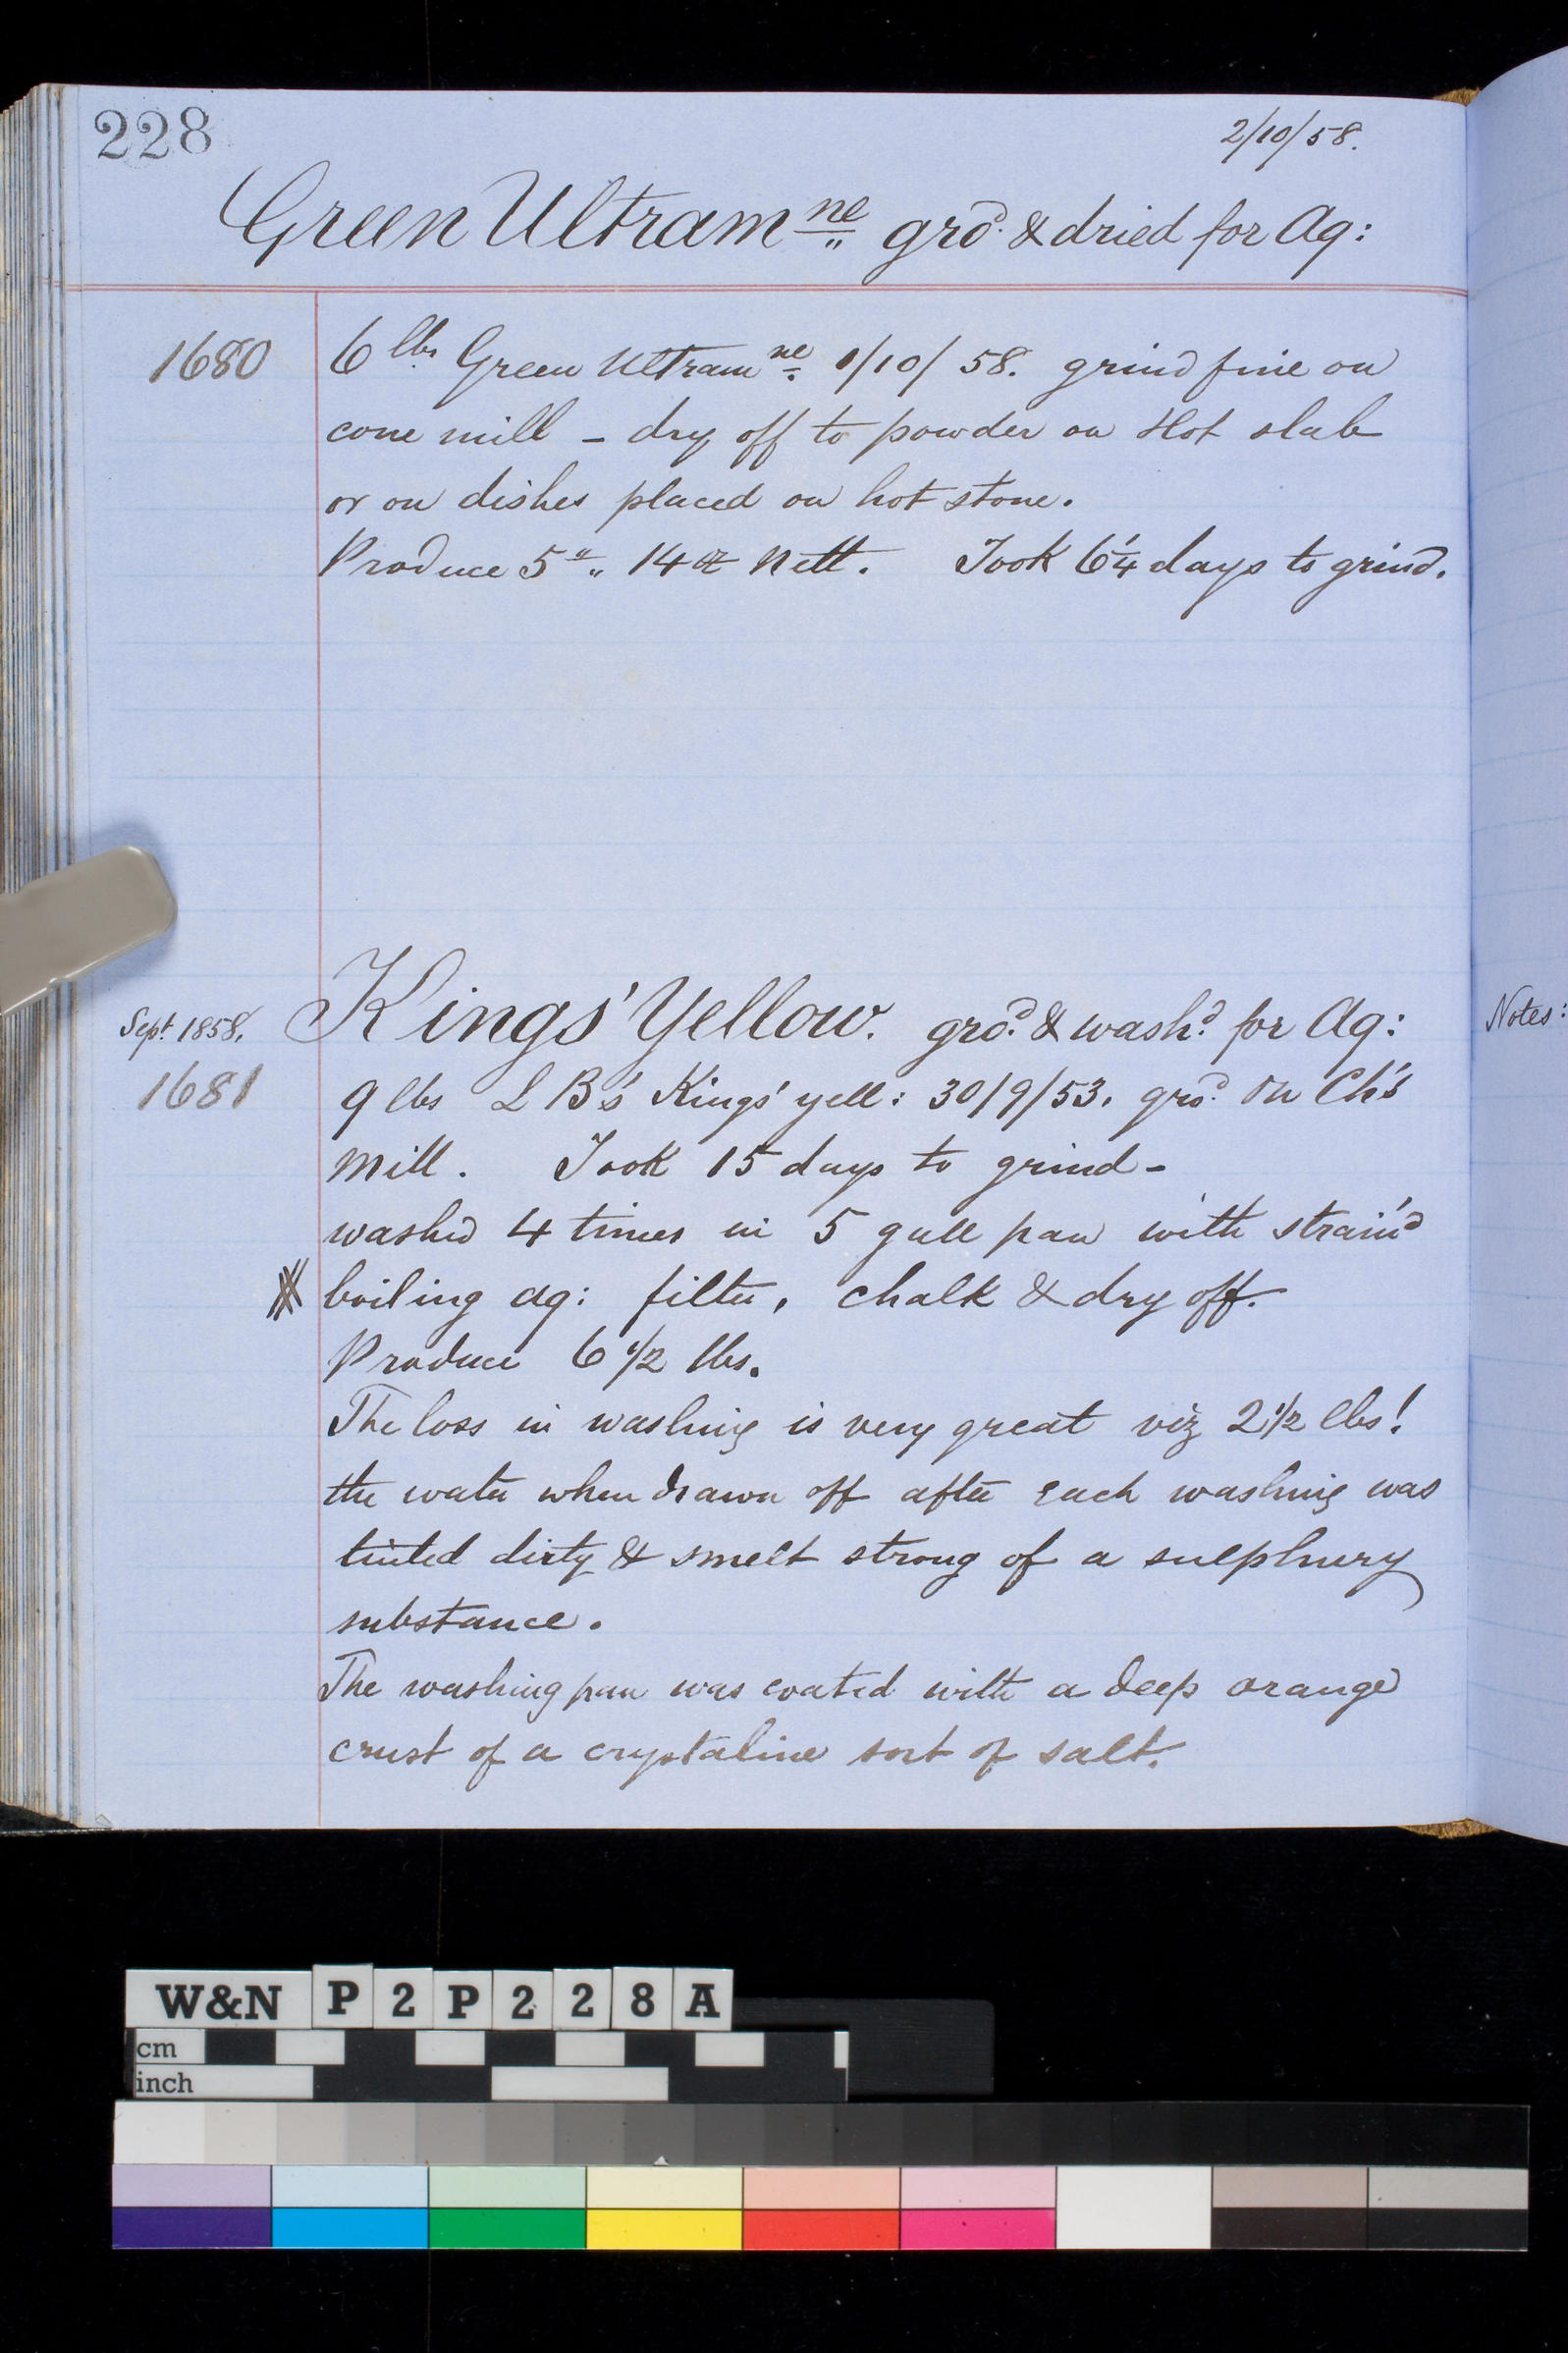 228
2/10/58.
Green Ultramne grd. & dried for Aq:
1680 6 lbs Green Ultramne 1/10/58. grind fine on
cone mill – dry off to powder on Hot slab
or on dishes placed on hot stone.
Produce 5 lb 14 oz Nett. Took 6 1/4 days to grind.
Sept. 1858. Kings' Yellow. grd. & washd. for Aq:
Notes:
1681 9 lbs L B's Kings' yell: 30/9/53. grd. on Ch's
Mill. Took 15 days to grind –
washed 4 times in 5 gall pan with strain'd
boiling aq: filter, chalk & dry off.
Produce 6 1/2 lbs.
The loss in washing is very great viz 2 1/2 lbs!
the water when drawn off after each washing was
tinted dirty & smelt strong of a sulphury
substance.
The washing pan was coated with a deep orange
crust of a crystaline sort of salt.
W&N P2P228A
cm
inch